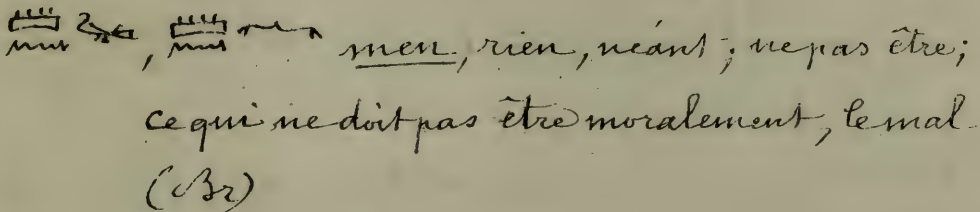 𓏠𓈖𓅪, 𓏠𓈖𓂜 men, rien, néant ; ne pas être;
ce qui ne doit pas être moralement, le mal
(Br)